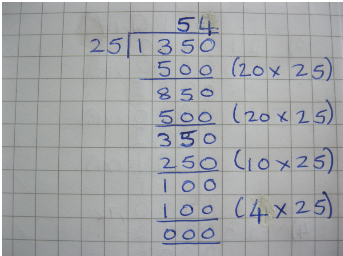 54
25 1350
500 (20 x 25)
850
500 (20 x 25)
350
250 (10 x 25)
100
100 (4 x 25)
000